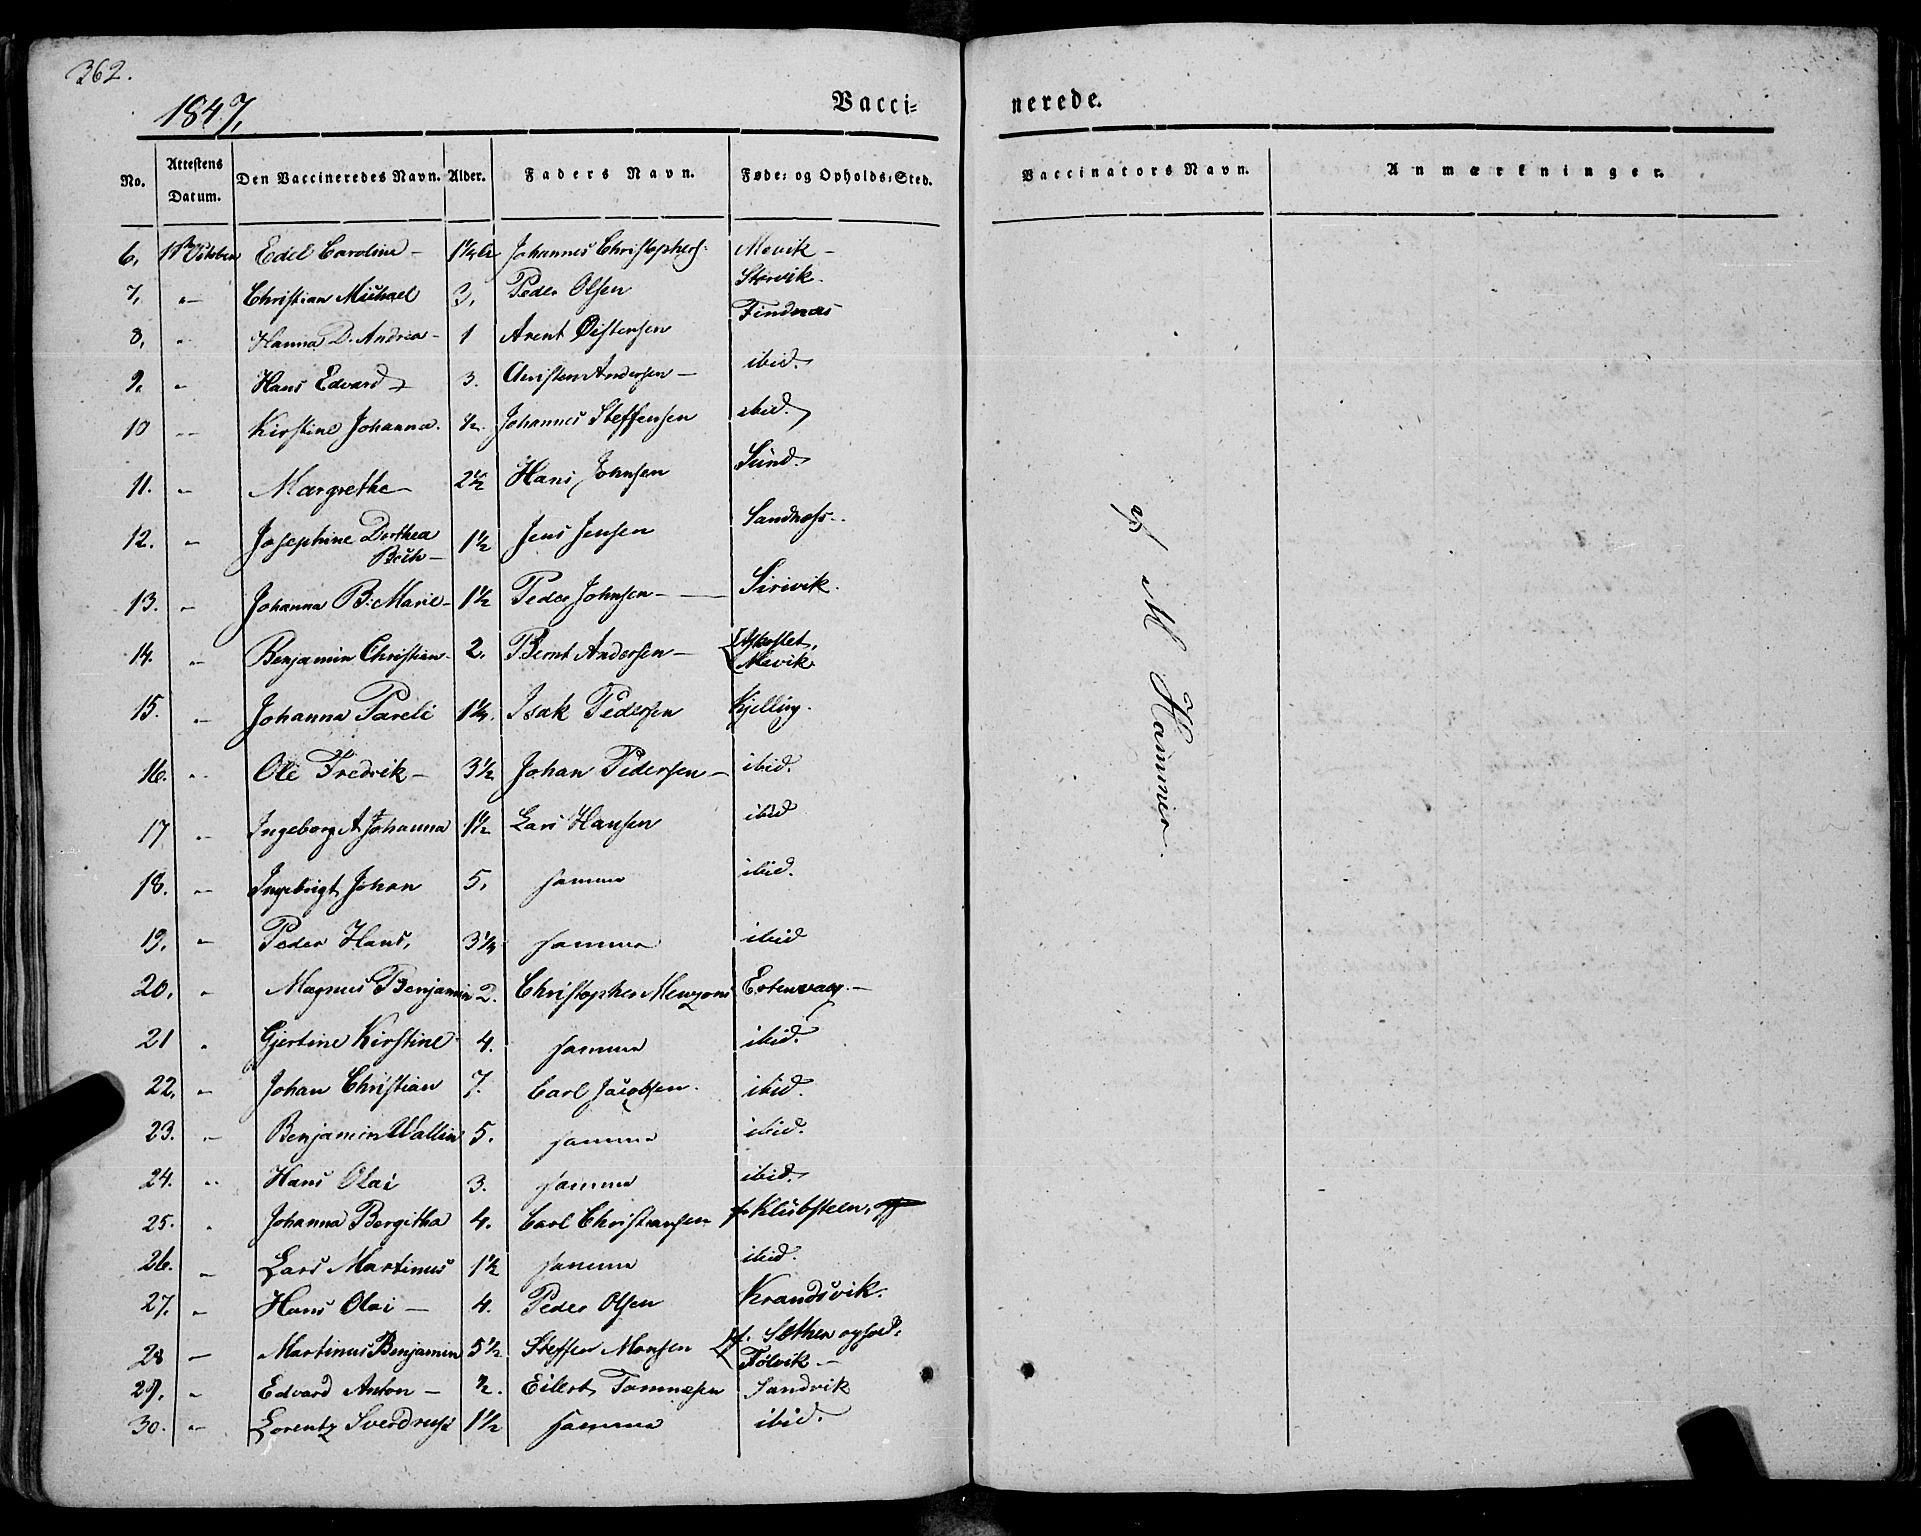 362.
1847,
Vacci=
nerede.
No. Attestens Datum. Den Vaccineredes Navn. Alder. Faders Navn. Føde= og Opholds=Sted. Vaccinators Navn. Anmærkninger.
6, Edel Caroline – Johannes Christophers: Mevik –
7, „ Christian Michael 3, Peder Olsen Størvik.
8, „ Hanna D. Andrea – 1 Arent Øistensen Findnæs
9, „ Hans Edvard 3. Christen Andersen – ibid.
10 „ Kirstine Johanna. ½. Johannes Steffensen ibid.
11. „ Margrethe – 2½ Hans Johnsen Sund.
12. „ Josephine Dorthea 1½ Jens Jensen Sandnæss..
Bech –
13. „ Johanna B. Marie – 1½ Peder Johnsen – Sirivik.
14. „ Benjamin Christian – 2. Bernt Andersen –
Mevik
15. „ Johanna Pareli 1¼. Isak Pedersen Kjelling.
16. „ Ole Fredrik – 3½ Johan Pedersen – ibid.
17 „ Ingeborg A Johanna 1½ Lars Hansen ibid
18. „ Ingebrigt Johan 5, samme ibid.
19. „ Peder Hans, 3¼ samme ibid
20, „ Magnus Benjamin 2. Christopher Menzoni Estenvaag. –
21 „ Gjertine Kirstine 4. samme ibid.
22, „ Johan Christian 7. Carl Jacobsen. ibid.
23. „ Benjamin Wallin 5. samme ibid.
24. „ Hans Olai 3. samme ibid.
25. „ Johanna Bergitha 4. Carl Christiansen Klubsteen,
26. „ Lars Martinus 1½ samme ibid.
27. „ Hans Olai – 4. Peder Olsen Krandsvik.
28 „ Martinus Benjamin 5½ Steffen Monsen f. Sæther opfød:
Følvik –
29. „ Edvard Anton – ½. Eilert Tommesen Sandvik
30. „ Lorentz Sverdrup 1½ samme ibid.
af M Hammer.